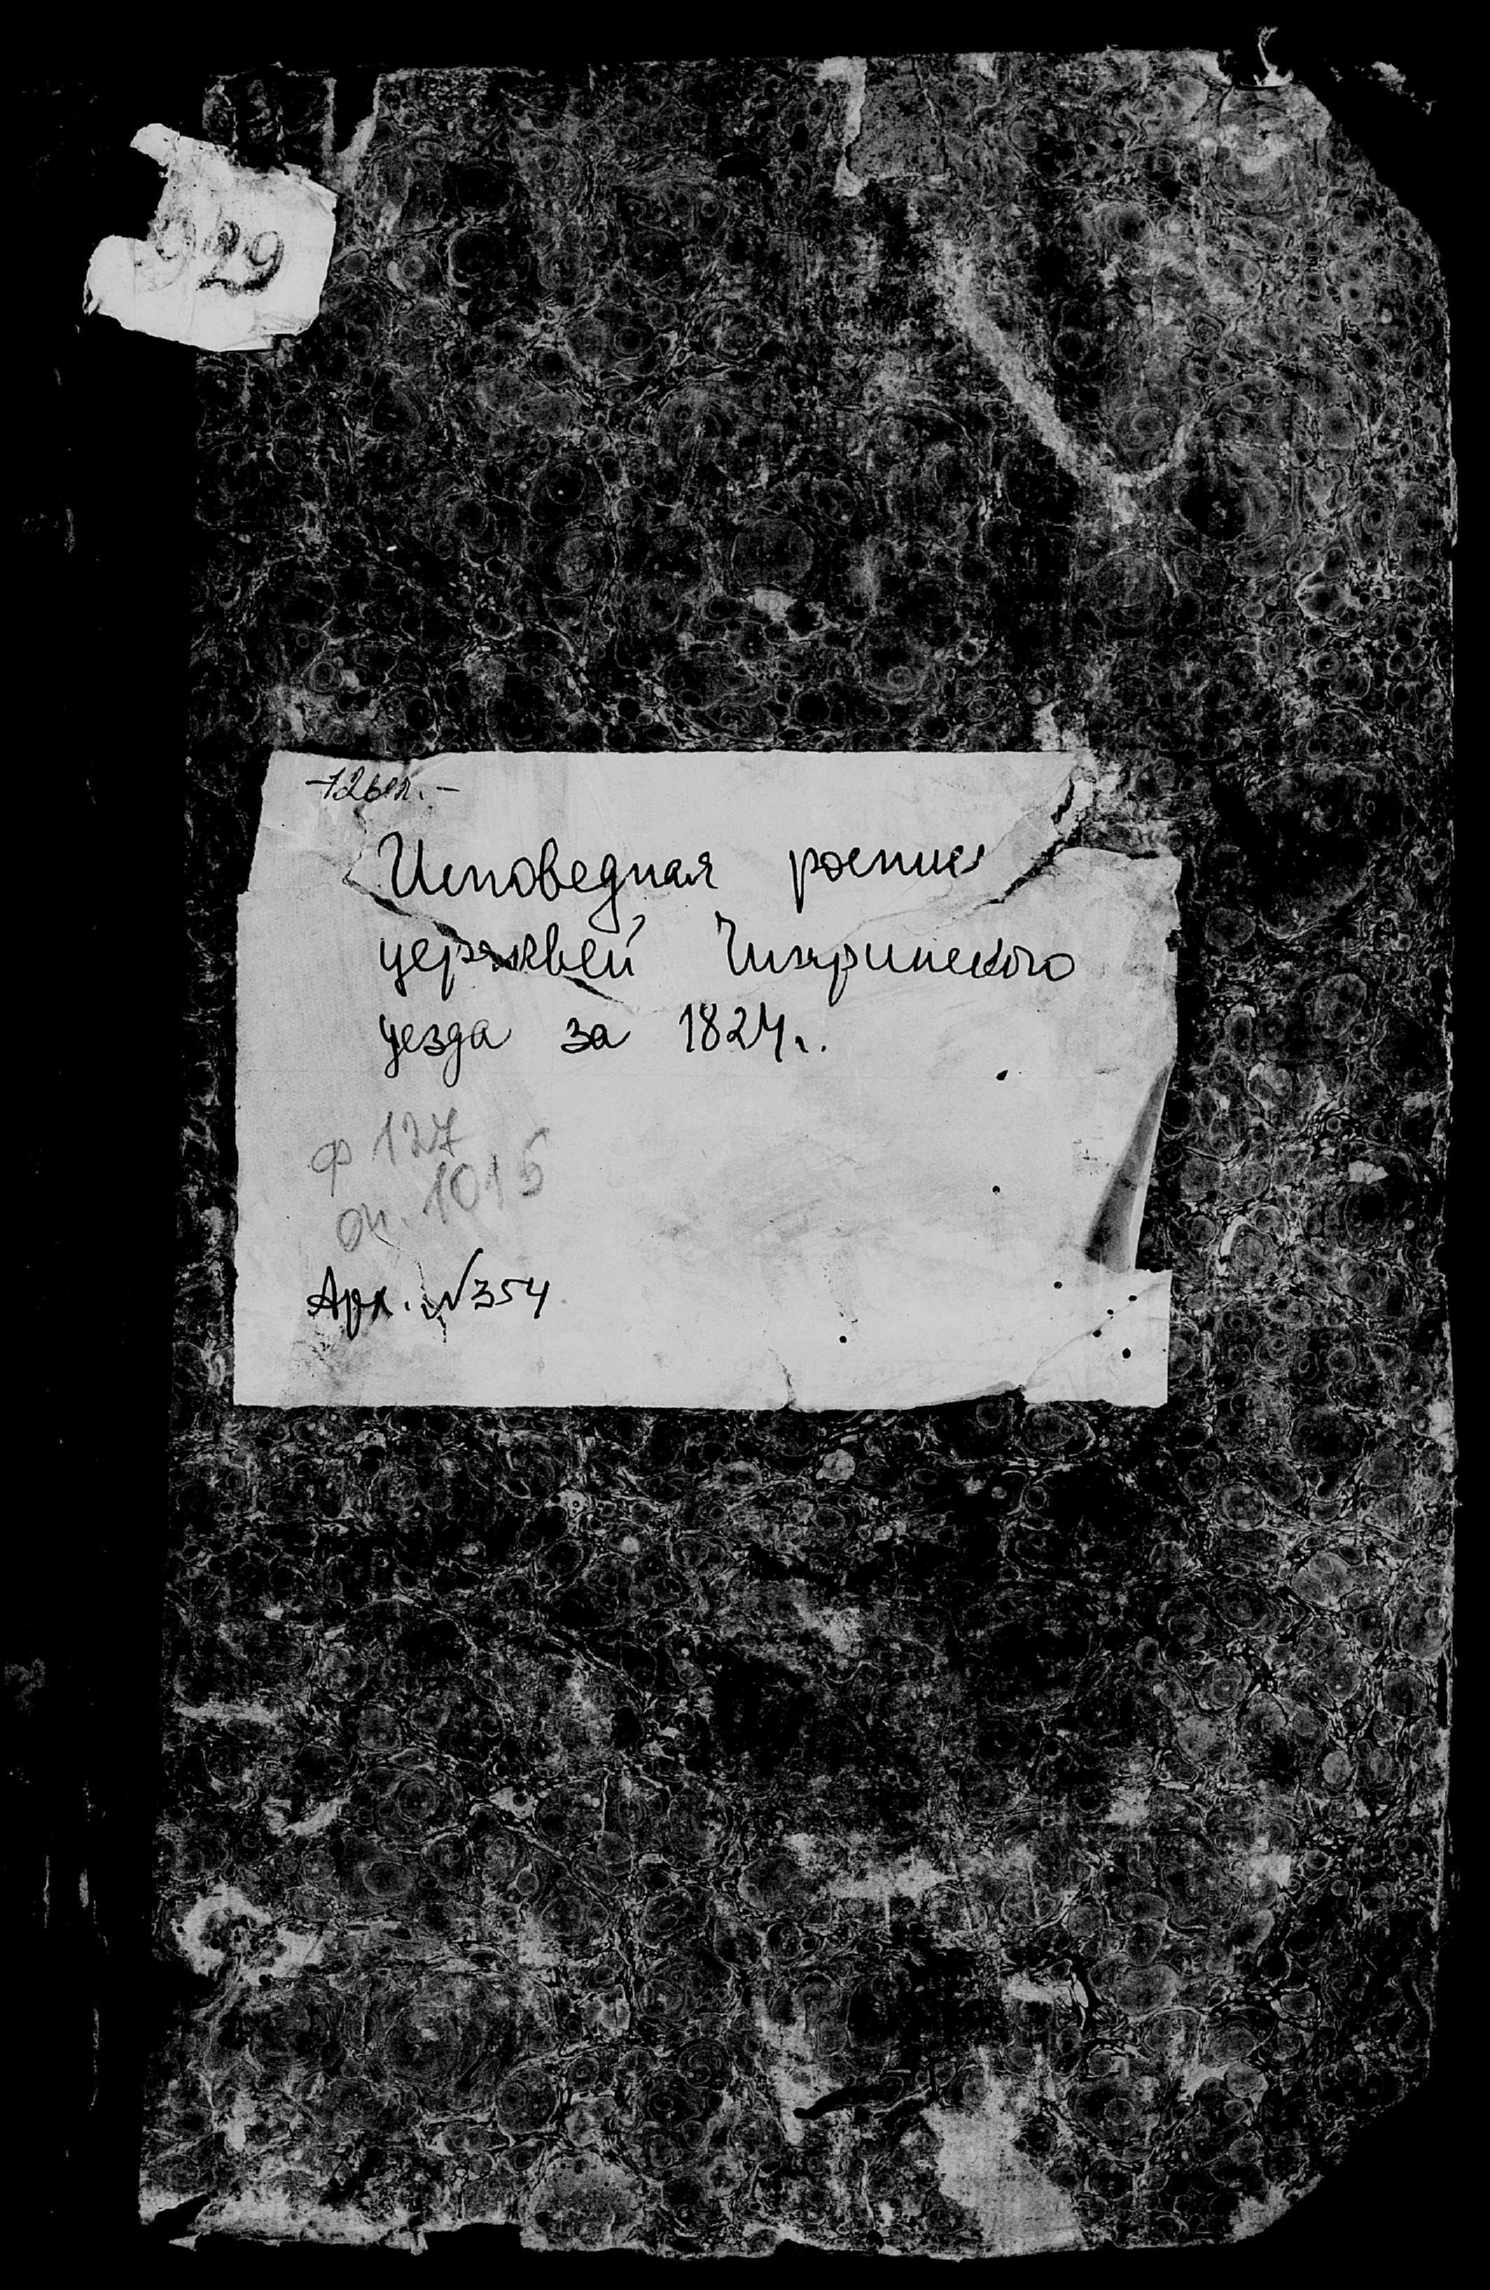 929
Исповедная роспись
церквей Чигиринского
уезда за 1824 г.
ф 127
оп. 1015
Арх. №354